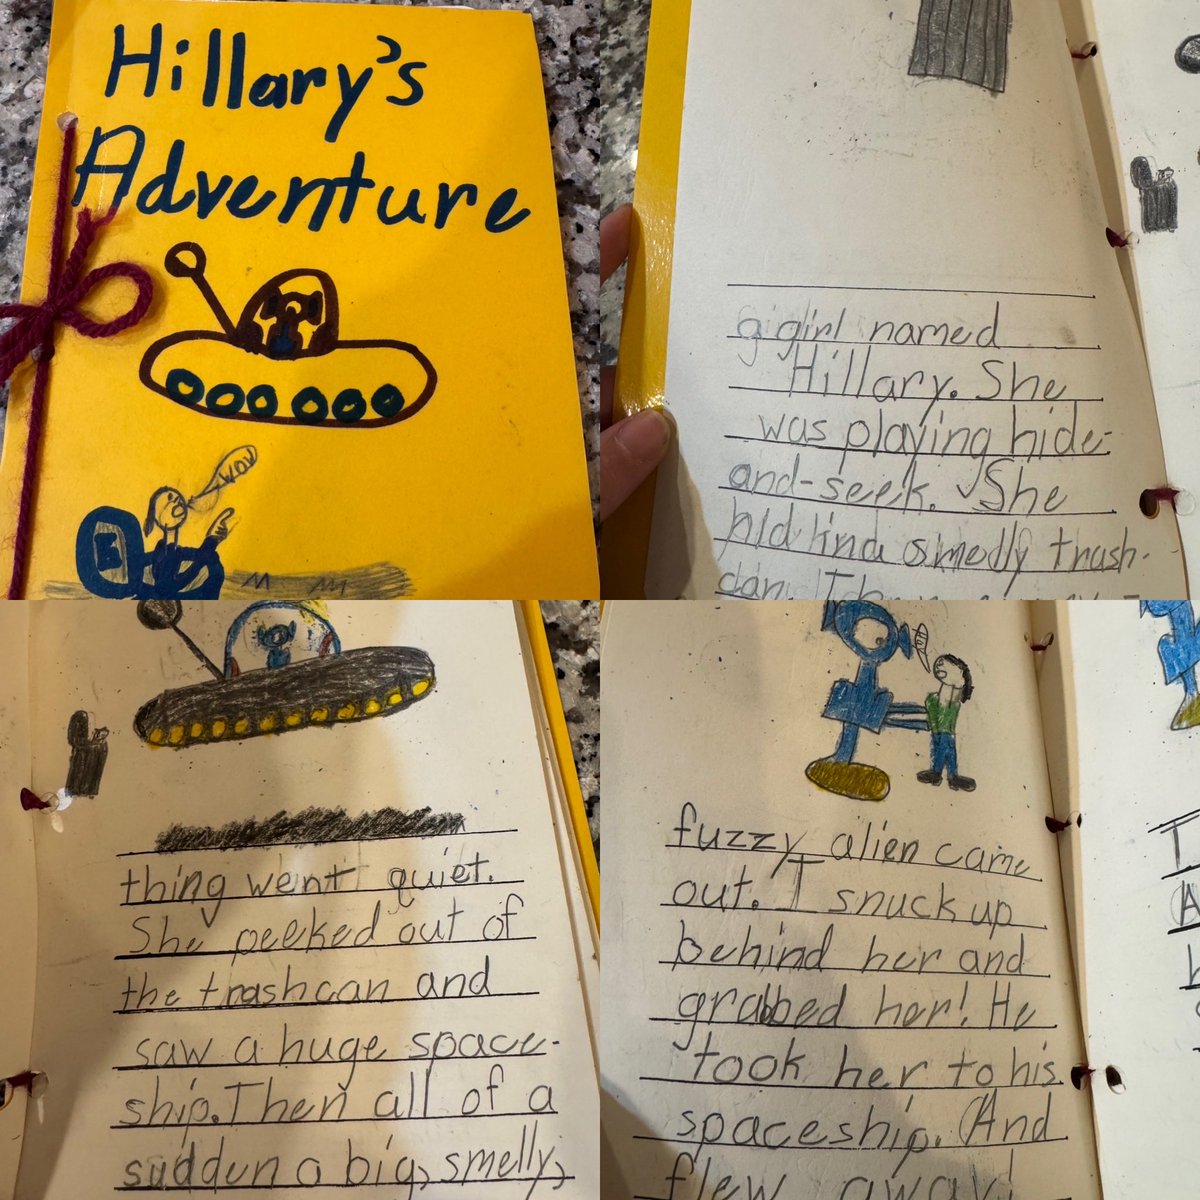 Hillary's
Adventure
WOW
girl named
Hillary. She
was playing hide-
and-seek. She
hid in a smelly trash-
can.
thing went quiet.
She peeked out of
the trashcan and
saw a huge space-
ship. Then all of a
sudden a big, smelly,
fuzzy alien came
out. I snuck up
behind her and
grabbed her! He
took her to his
spaceship. And
flew away!